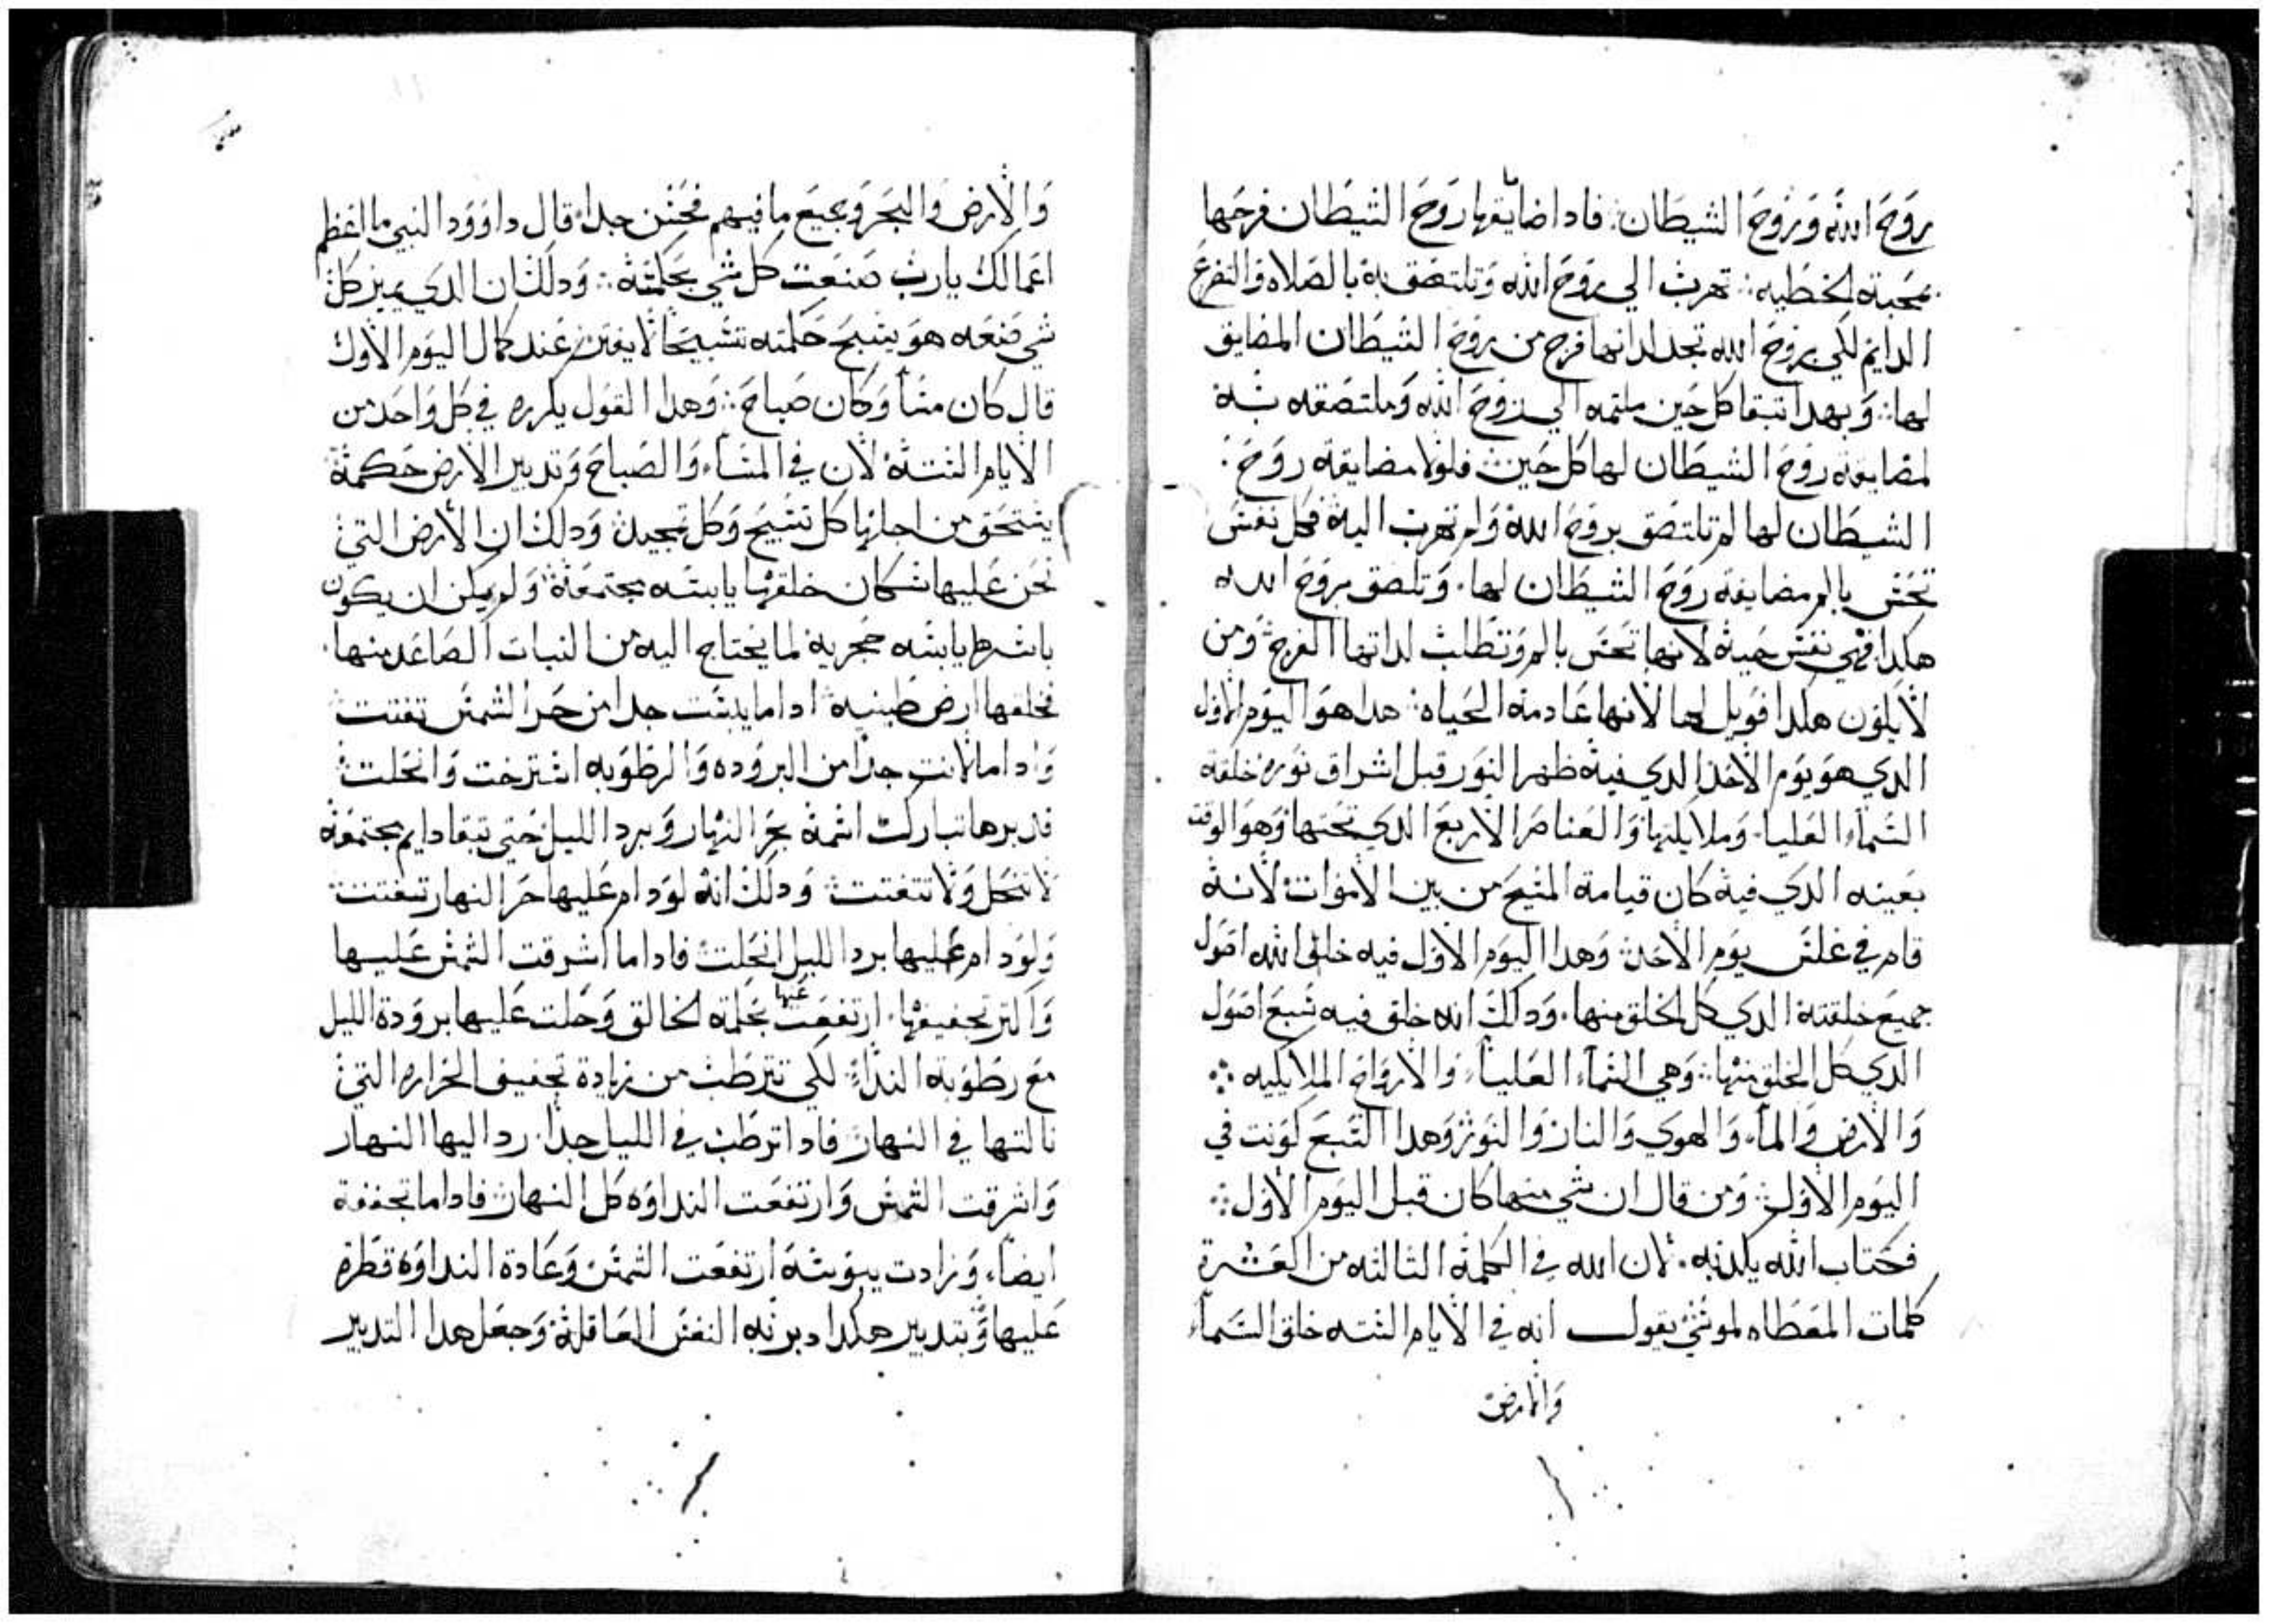 روح الله وروح الشيطان: فادا ضايقها روح الشيطان فرحها
بمحبة الخطيه: تهرب الي روح الله وتلتصق به بالصلاه والتضرع
الدايم لكي بروح الله تجد لداتها فرج من روح الشيطان المضايق
لها: وبهدا تبقا كل حين ملتجه الي روح الله وملتصقه به
لمضايقة روح الشيطان لها كل حين فلولا مضايقة روح
الشيطان لها لم تلتصق بروح الله ولم تهرب اليه فكل نفس
تحس بالم مضايقة روح الشيطان لها. وتلصق بروح الله
هكدا فهي نفس حية لانها تحس بالم وتطلب لداتها الفرج ومن
لا يكون هكدا فويل لها لانها عادمة الحياه: هدا هو اليوم الاول
الدي هو يوم الاحد الدي فيه ظهر النور قبل اشراق نوره خلقة
السماء العليا. وملايكتها والعناصر الاربع الدي تحتها وهو الوقت
بعينه الدي فيه كان قيامة المسيح من بين الاموات لانه
قام في غلس يوم الاحد وهدا اليوم الاول فيه خلق الله اصول
جميع خلقته الدي كل الخلق منها. ودلك انه خلق فيه سبع اصول
الدي كل الخلق منها: وهي السماء العليا: والارواح الملايكيه:
والارض والماء والهوي والنار والنور وهدا السبع كونت في
اليوم الاول: ومن قال ان شي منها كان قبل اليوم الاول:
فكتاب الله يكدبه. لان الله في الكلمة التالته من العشرة
كلمات المعطاه لموسي يقول انه في الايام الستة خلق السماء
والارض
والارض والبحر وجميع ما فيهم فحسن جدا قال داوود النبي ما اعظم
اعمالك يارب صنعت كل شي بحكمة: ودلك ان الدي يميز كل
شي صنعه هو يسبح حكمته تسبيحا لا يفتر عند كمال اليوم الاول
قال كان مسا وكان صباح: وهدا القول يكرره في كل واحد من
الايام الستة لان في المساء والصباح وتدبير الارض حكمة
يستحق من اجلها كل تسبيح وكل تمجيد ودلك ان الارض التي
نحن عليها سكان خلقها يابسه مجتمعة ولم يمكن ان يكون
باسرها يابسه حجرية لما يحتاج اليه من النبات الصاعد منها.
فخلقها ارض طينيه ادا ما يبست جدا من حر الشمس تفتتت
وادا ما لانت جدا من البروده والرطوبه استرخت وانحلت
فدبرها تبارك اسمه بحر النهار وبرد الليل حتي تبقا دايم مجتمعة
لا تنحل ولا تتفتت ودلك انه لو دام عليها حر النهار تتفتت
ولو دام عليها برد الليل انحلت فادا ما اشرقت الشمس عليها
واكتر تجفيفها. ارتفعت عنها بحكمة الخالق وحلت عليها برودة الليل
مع رطوبة الندا: لكي تترطب من زيادة تجفيف الحراره التي
نالتها في النهار فادا ترطبت في الليل جدا. رد اليها النهار
واشرقت الشمس وارتفعت النداوه كل النهار فادا ما تجففة
ايضا. وزادت يبوسة ارتفعت الشمس وعادة النداوة قطرة
عليها وبتدبير هكدا دبر به النفس العاقلة وجعل هدا التدبير